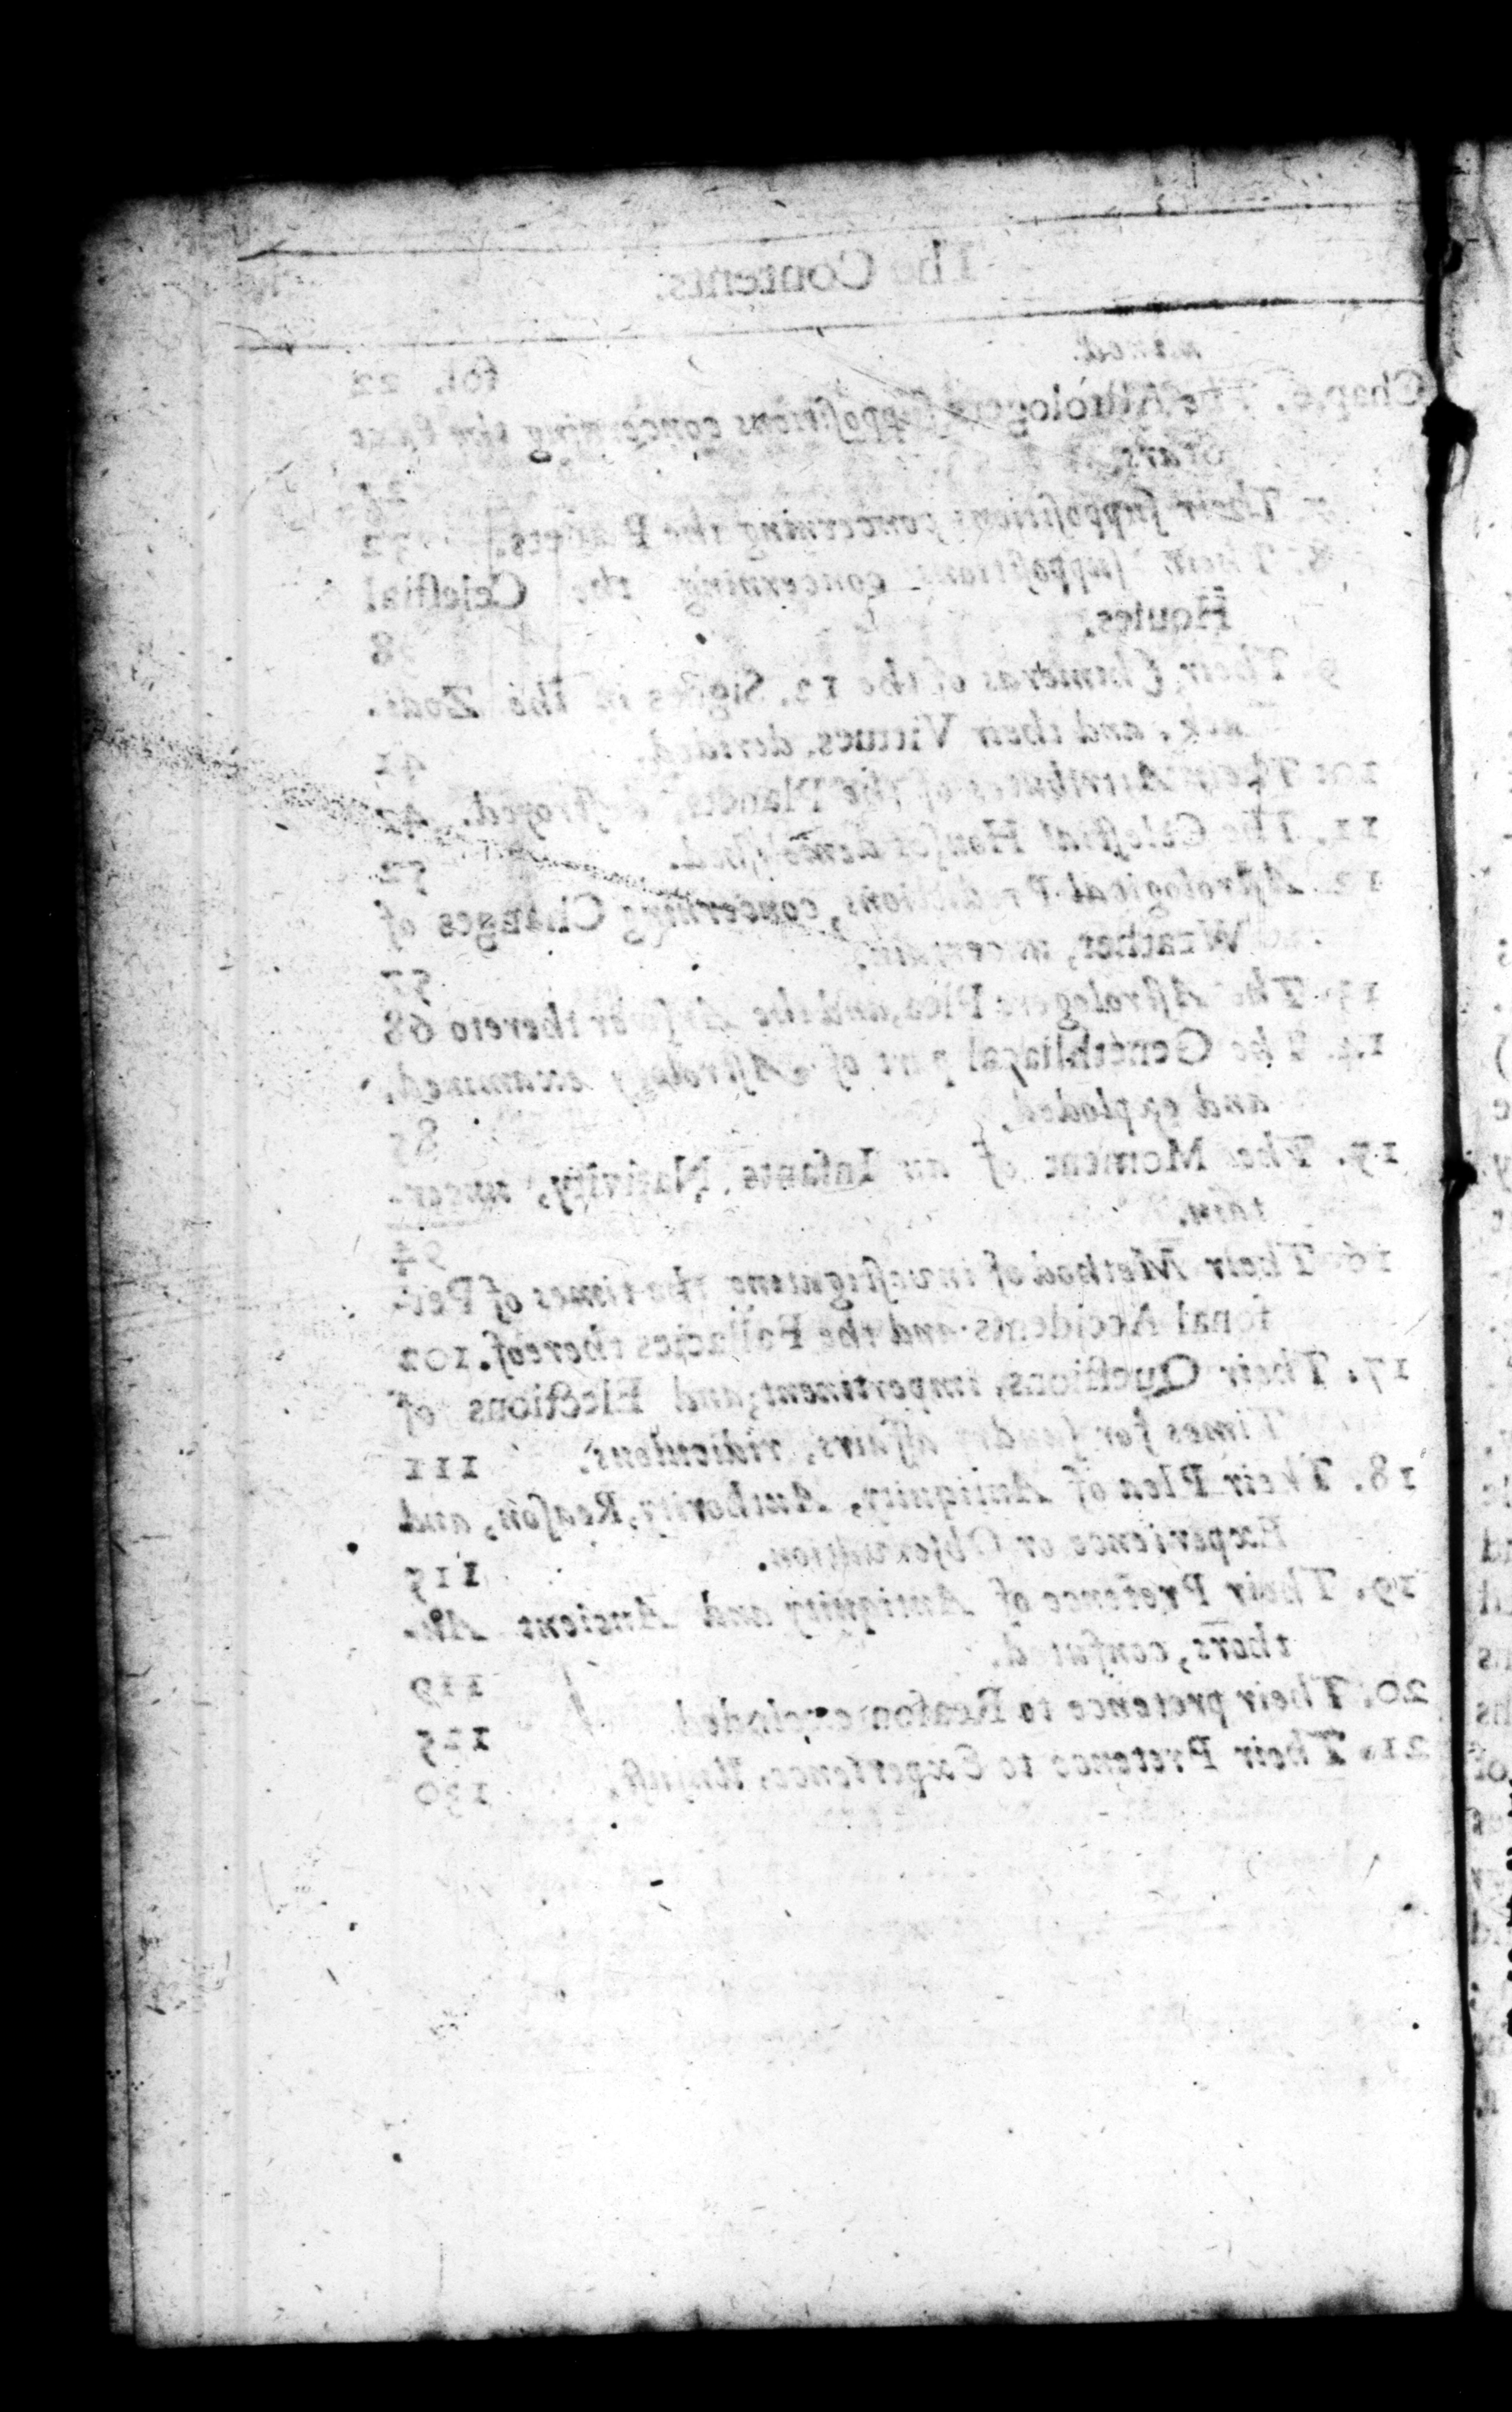 The Contents.
mined. fol. 22
Chap. 6. The Astrologers ſuppoſitions concerning the
Stars. 26
7. Their ſuppoſitions concerning the Planets. 32
8. Their ſuppoſitions concerning the Celeſtial
Houſes. 38
9. Their Chimeras of the 12. Signes in the Zodi-
ack, and their Virtues, derided. 41
10. Their Attributes of the Planets, deſtroyed.
11. The Celeſtial Houſes demoliſhed. 52
12. Aſtrological Predictions, concerning Changes of
Weather, uncertain. 57
13. The Aſtrologers Plea, and the Anſwer thereto 68
14. The Genethliacal part of Aſtrology examined,
and exploded. 85
15. The Moment of an Infants Nativity, uncer-
tain. 94
16. Their Method of inveſtigating the times of Per-
ſonal Accidents and the Fallacies thereof. 102
17. Their Queſtions, impertinent; and Elections of
Times for ſundry affairs, ridiculous. 111
18. Their Plea of Antiquity, Authority, Reaſon, and
Experience or Obſervation. 115
19. Their Pretence of Antiquity and Ancient Au-
thors, confuted. 119
20. Their pretence to Reaſon exploded. 125
21. Their Pretence to Experience, Unjuſt. 130